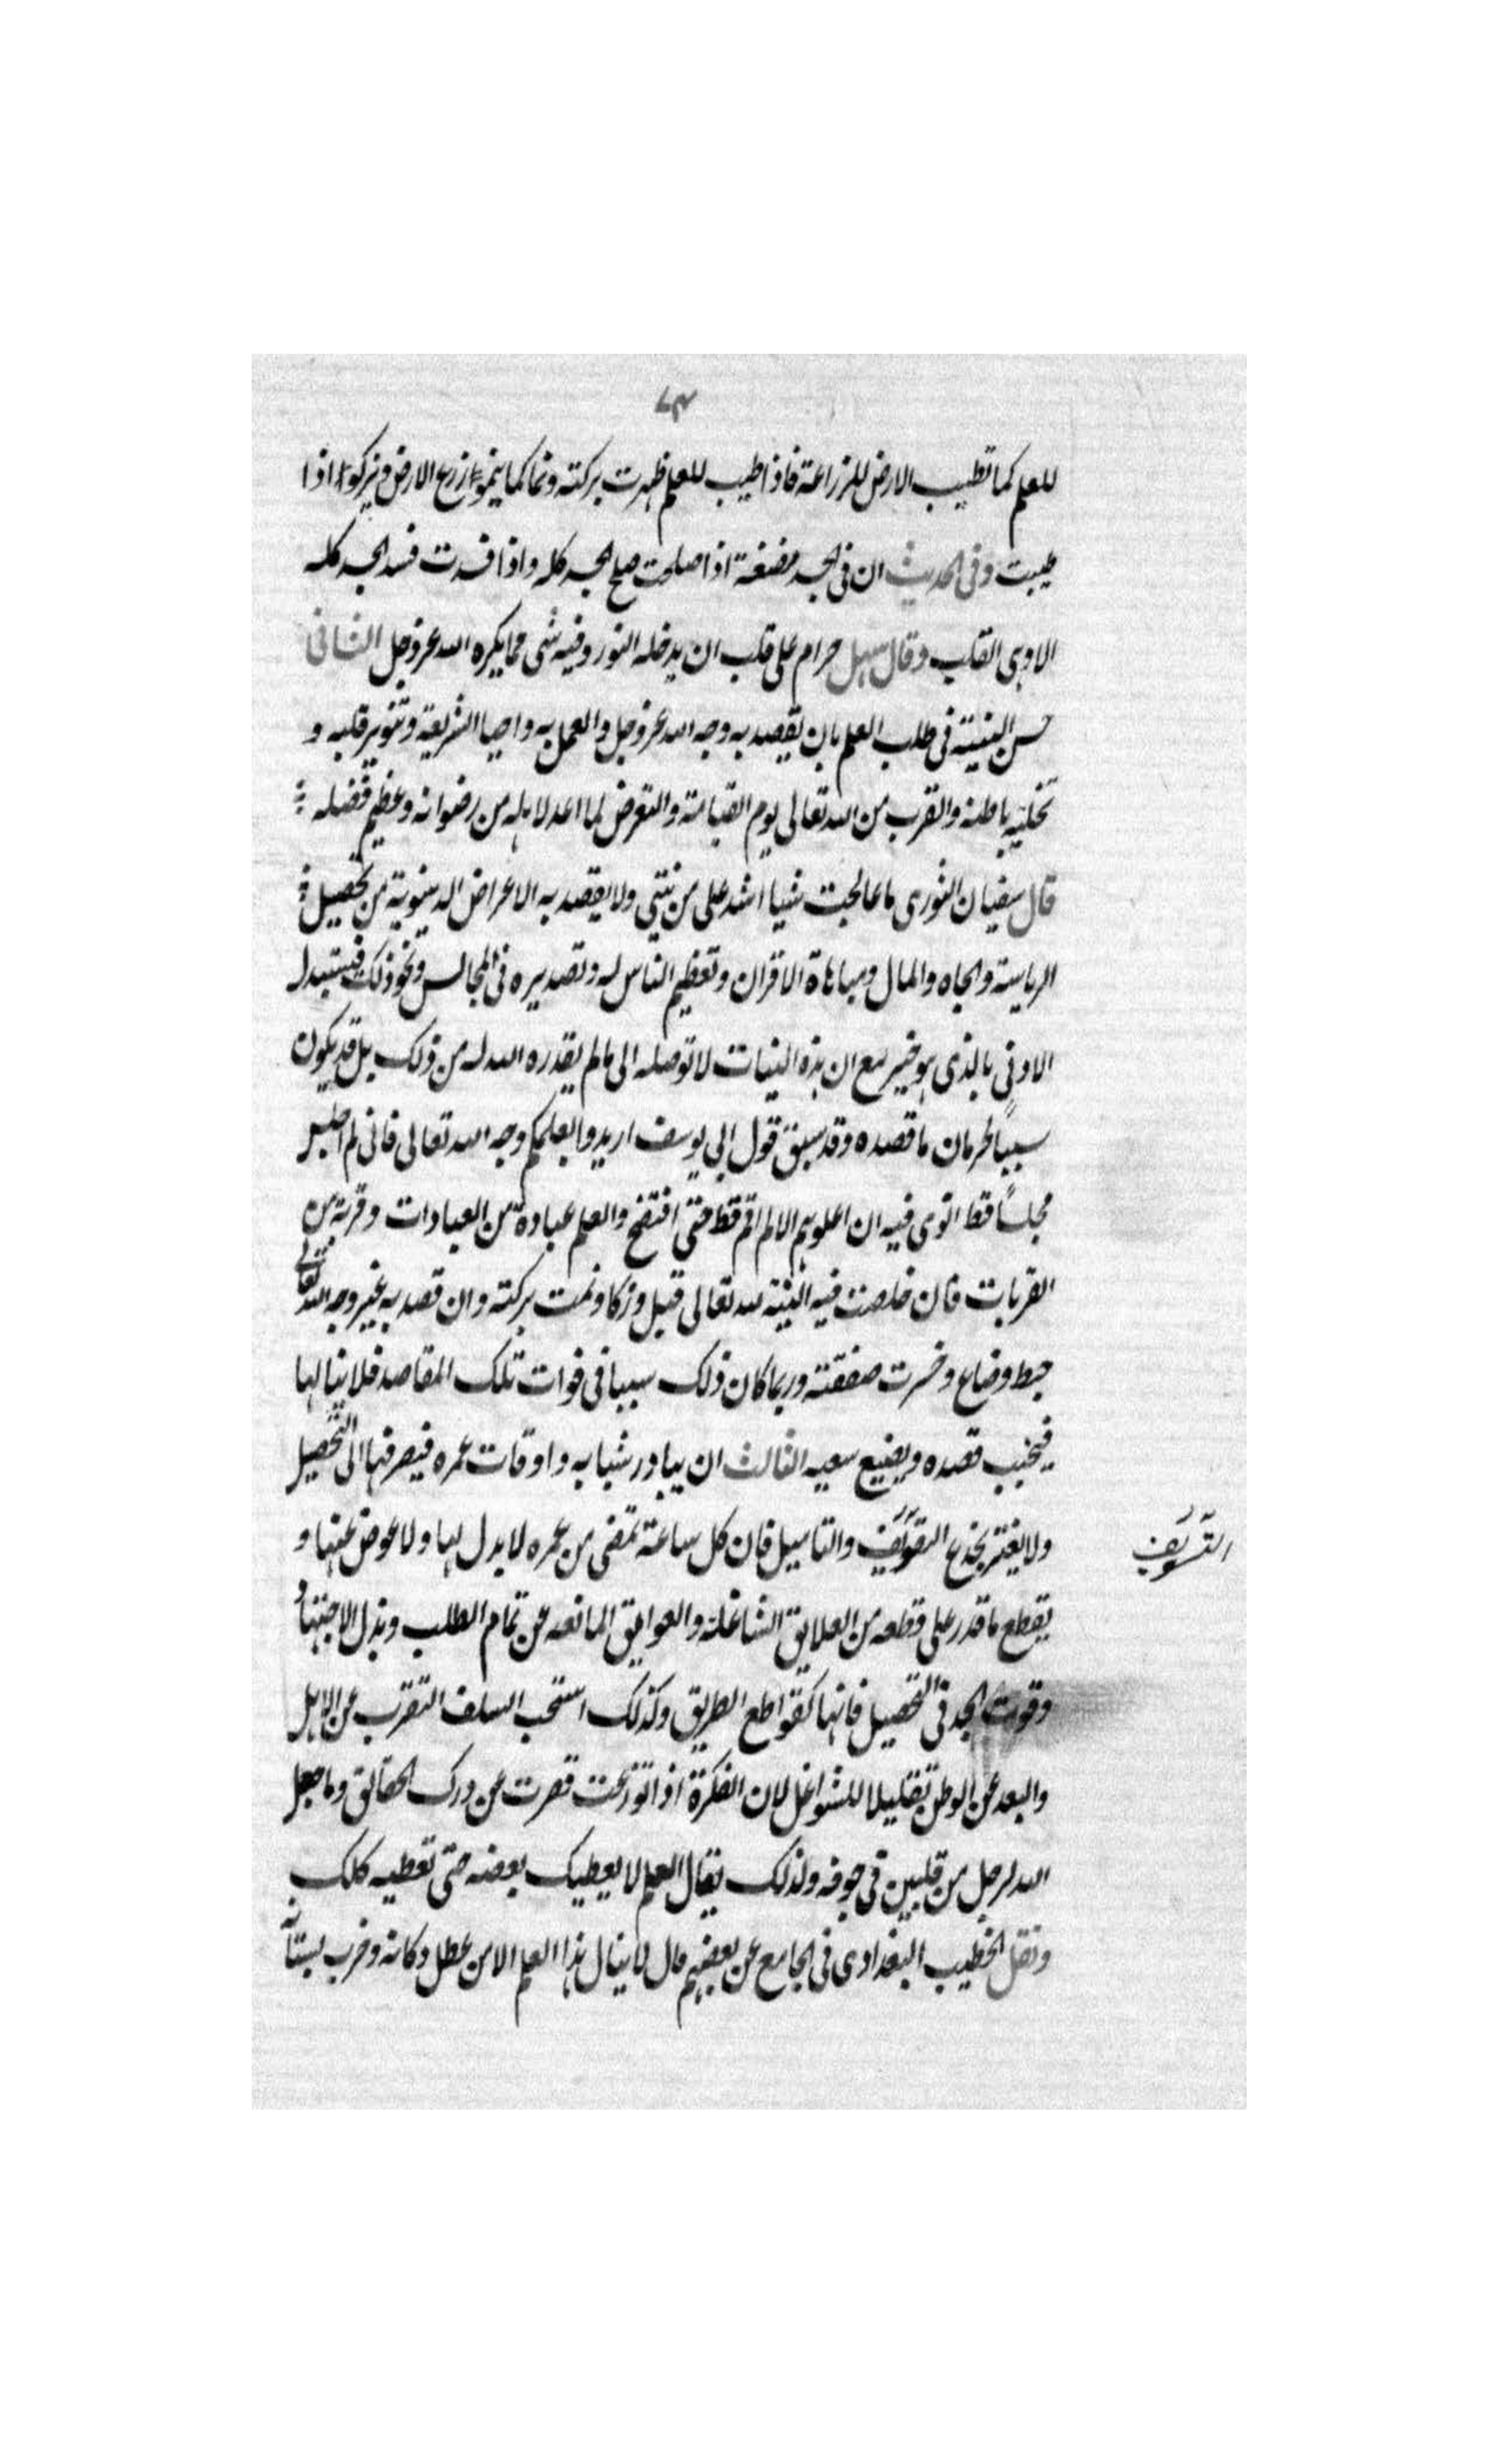 ٧٣
للعلم كما تطيب الارض للزراعة فاذا طيب للعلم ظهرت بركته ونما كما ينمو زرع الارض ويزكو اذا
طيبت وفى الحديث ان فى الجسد مضغة اذا صلحت صلح الجسد كله واذا فسدت فسد الجسد كله
الا وهى القلب وقال سهل حرام على قلب ان يدخله النور وفيه شى مما يكره الله عز وجل الثانى
حسن النية فى طلب العلم بان يقصد به وجه الله عز وجل والعمل به واحيا الشريعة وتنوير قلبه و
تحلية باطنه والقرب من الله تعالى يوم القيامة والتعرض لما اعد لاهله من رضوانه وعظيم فضله
قال سفيان الثورى ما عالجت شيا اشد على من نيتي ولا يقصد به الاعراض الدنيوية من تحصيل
الرياسة والجاه والمال ومباهاة الاقران وتعظيم الناس له وتصديره فى المجالس ونحو ذلك فيستبدل
الادنى بالذى هو خير مع ان هذه النيات لا توصله الى ما لم يقدره الله له من ذلك بل قد يكون
سببًا لحرمان ما قصده وقد سبق قول ابي يوسف اريدوا بعلمكم وجه الله تعالى فانى لم اجلس
مجلسًا قط انوى فيه ان اعلوهم الا لم اقم قط حتى افتضح والعلم عبادة من العبادات وقربة من
القربات فان خلصت فيه النية لله تعالى قبل وزكا ونمت بركته وان قصد به غير وجه الله تعالى
حبط وضاع وخسرت صفقته وربما كان ذلك سببا فى فوات تلك المقاصد فلا ينالها
فيخيب قصده ويضيع سعيه الثالث ان يبادر شبابه واوقات عمره فيصرفها الى التحصيل
ولا يغتر بخدع التسويف والتاميل فان كل ساعة تمضى من عمره لا بدل لها ولا عوض عنها و
التسويف
يقطع ما قدر على قطعه من العلايق الشاغلة والعوايق المانعه عن تمام الطلب وبذل الاجتهاد
وقوت الجد فى التحصيل فانها كقواطع الطريق وكذلك استحب السلف التغرب عن الاهل
والبعد عن الوطن تقليلا للشواغل لان الفكرة اذا توزعت قصرت عن درك الحقائق وما جعل
الله لرجل من قلبين فى جوفه ولذلك يقال العلم لا يعطيك بعضه حتى تعطيه كلك
ونقل الخطيب البغدادى فى الجامع عن بعضهم قال لا ينال هذا العلم الا من عطل دكانه وخرب بستانه